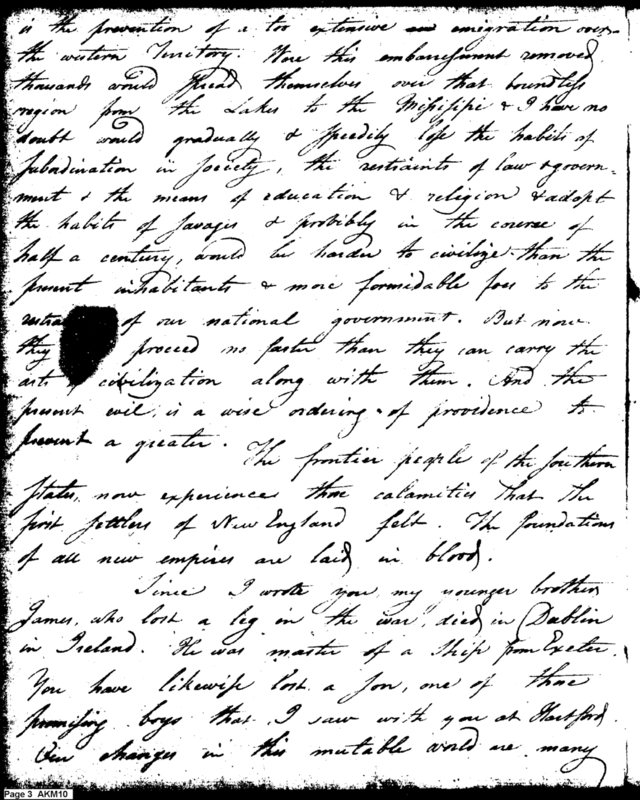 is the prevention of a too extensive emigration over
the western Territory. Were this embarrassment removed,
thousands would spread themselves over that boundless
region from the Lakes to the Missisippi & I have no
doubt would gradually & speedily lose the habits of
subordination in society, the restraints of law & govern-
ment & the means of education & religion & adopt
the habits of savages & probibly in the course of
half a century, would be harder to civilize than the
present inhabitants & more formidable foes to the
of our national government. But now
they proceed no faster than they can carry the
arts civilization along with them. And the
present evil, is a wise ordering of providence to
prevent a greater.
The frontier people of the southern
States, now experience those calamities that the
first settlers of New England felt. The foundations
of all new empires are laid in blood.
Since I wrote you, my younger brother
James, who lost a leg in the war, died in Dublin
in Ireland. He was master of a Ship from Exeter.
You have likewise lost a son, one of those
promising boys that I saw with you at Hartford.
Our changes in this mutable world are many
Page 3 AKM10